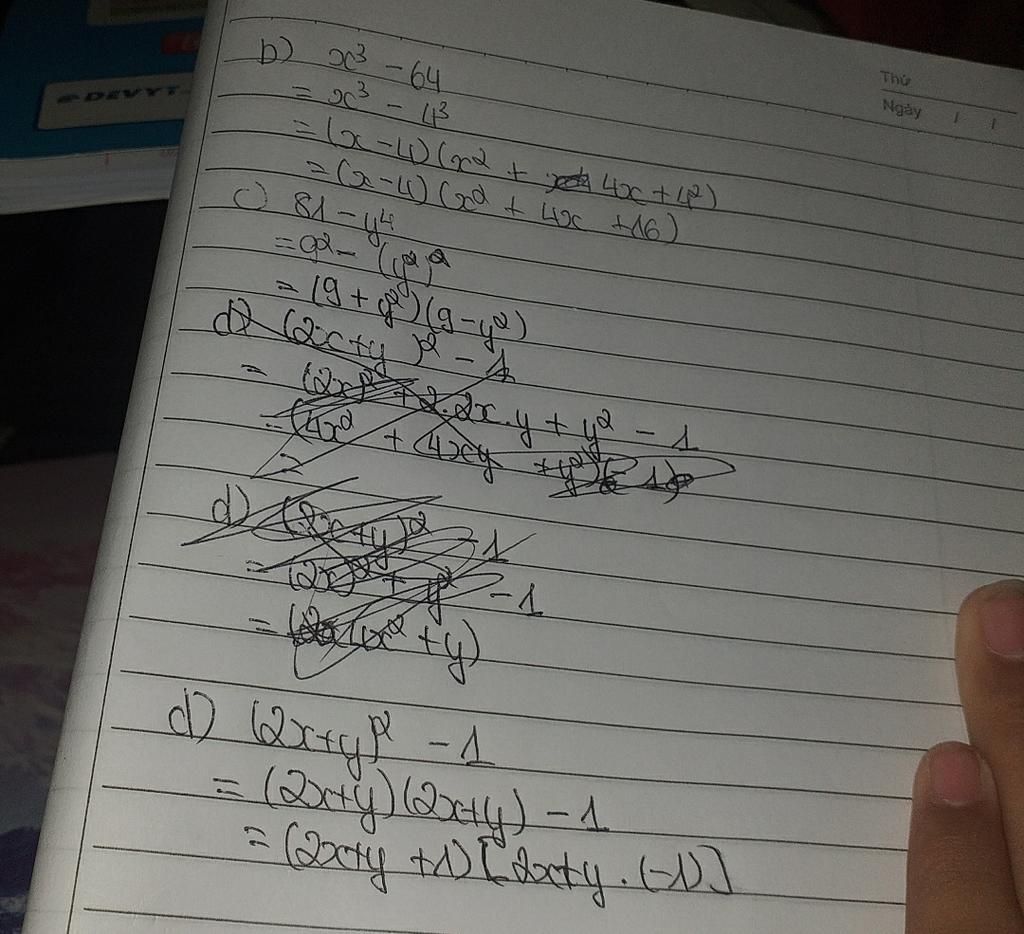 DEVYT
Thứ
Ngày / /
b) x³ - 64
= x³ - 4³
= (x-4)(x² + 4x + 4²)
= (x-4)(x² + 4x + 16)
c) 81 - y⁴
= 9² - (y²)²
= (9 + y²)(9 - y²)
d) (2x+y)² - 1
= (2x)² + 2.2x.y + y² - 1
= (4x² + (4xy + y²)(- 1)
=
d) (2x+y)² - 1
= (2x)² + y² - 1
= x² + y)
d) (2x+y)² - 1
= (2x+y)(2x+y) - 1
= (2x+y +1)[2x+y . (-1)]